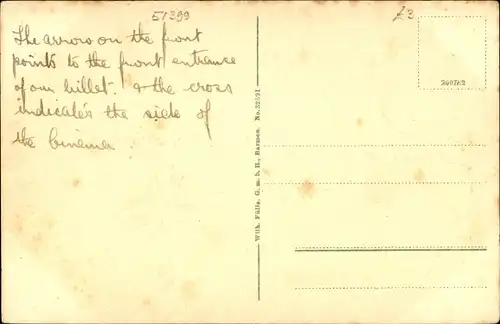 51399
£3
The arrow on the front
points to the front entrance
of our billet. & the cross
indicates the side of
the Cinema
Wilh. Fülle, G. m. b. H., Barmen. No. 32591